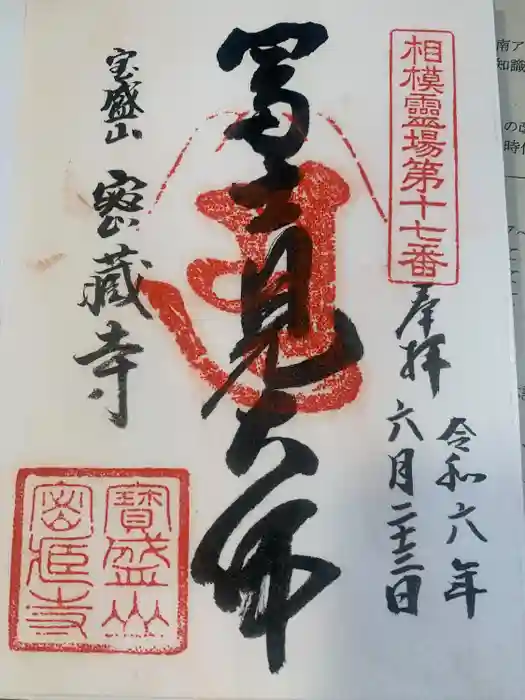 相模靈場第十七番
奉拝
令和六年
六月二十三日
富士見大師
宝盛山
密蔵寺
寶盛山
密蔵寺
南ア
知識
の
時